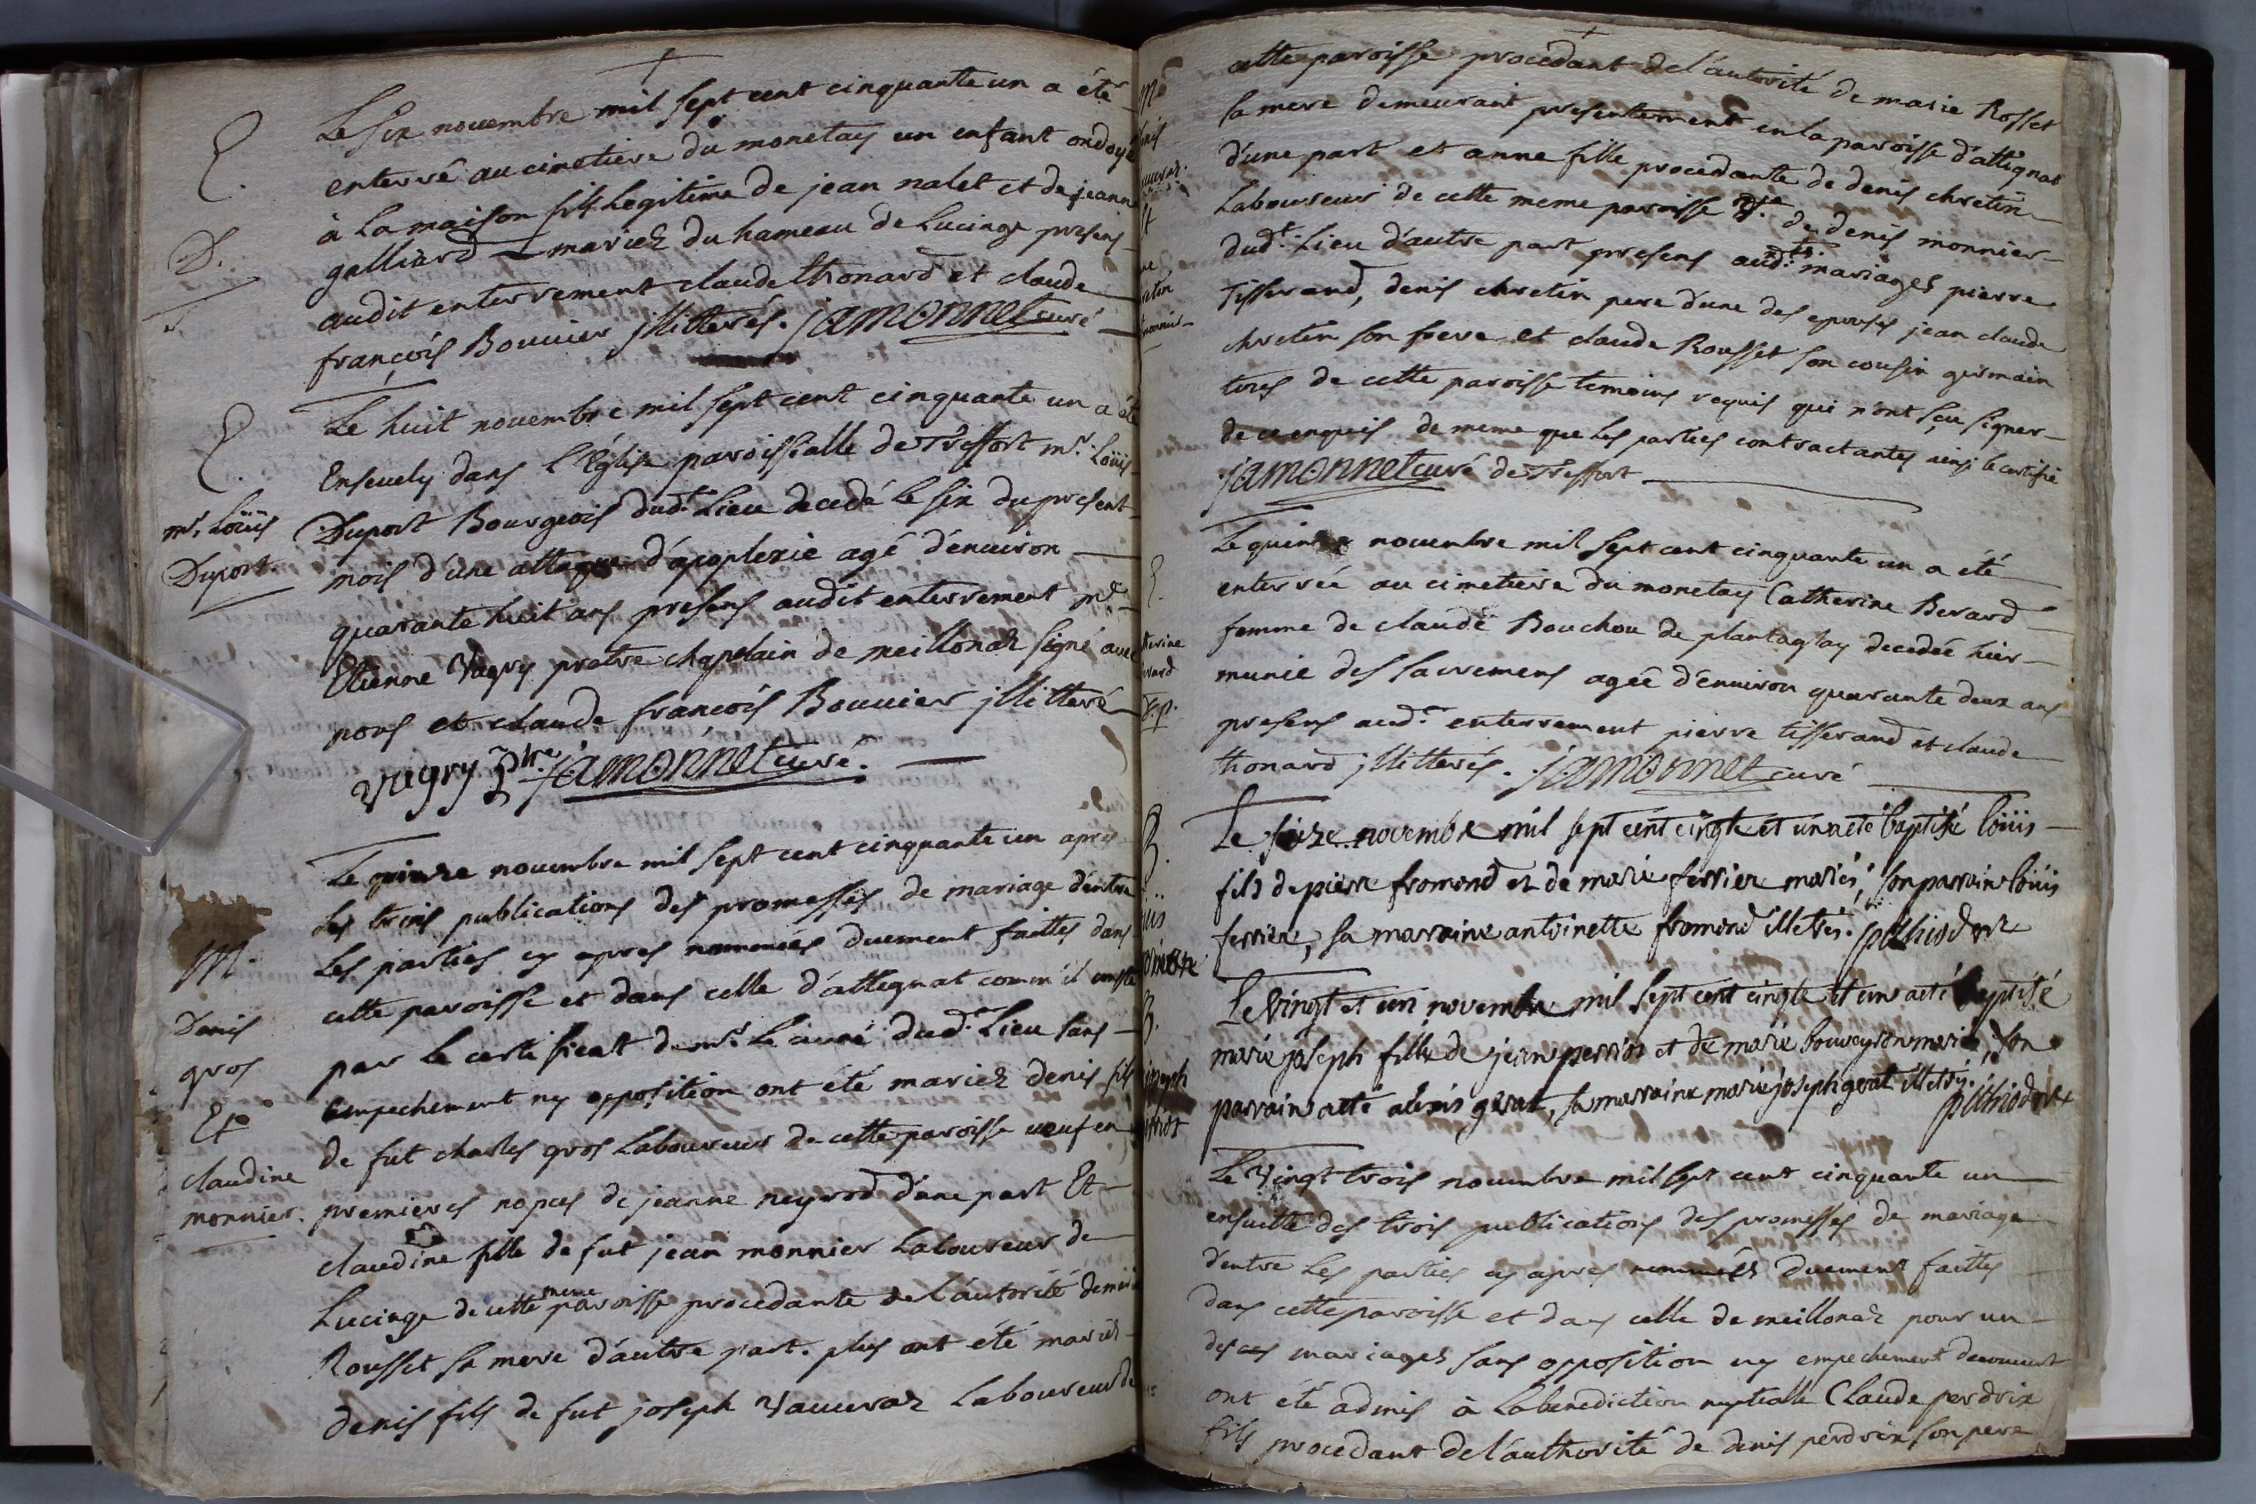 E.
Le six novembre mil sept cent cinquante un a été
enterré au cimetiere du monetay un enfant ondoyé
à la maison fils legitime de jean nalet et de jeanne
D.
galliard mariez du hameau de Lucinge presens
audit enterrement claude thonard et claude
françois Bouvier jllitterés. jamonnet curé
E.
Le huit novembre mil sept cent cinquante un a été
Ensevely dans l'Eglise paroissialle de Treffort mr. Loüis
mr. Loüis
Duport
Duport Bourgeois dudt. Lieu decedé le six du present
mois d'une attaque d'apoplexie agé d'environ
quarante huit ans presens audit enterrement mre
Etienne Vagry pretre chapelain de meillonaz signé avec
nous et claude françois Bouvier jllitteré
Vagry ptre jamonnet curé.
Le quinze novembre mil sept cent cinquante un après
les trois publications des promesses de mariage d'entre
M.
les parties cy apres nommées duement faittes dans
cette paroisse et dans celle d'attignat comm'il conste
Denis
gros
par le certificat de mr. le curé dudt. Lieu sans
empechement ny opposition ont été mariez denis fils
Et
de fut charles gros Laboureur de cette paroisse veuf en
claudine
monnier.
premieres nopces de jeanne neyrod d'une part Et
claudine fille de fut jean monnier Laboureur de
Lucinge de cette meme paroisse procedante de l'autorité de marie
Rousset sa mere d'autre part. plus ont été mariés
denis fils de fut joseph Vauveraz Laboureur de
cette paroisse procedant de l'autorité de marie Rosset
sa mere demeurant presentement en la paroisse d'attignat
d'une part et anne fille procedante de denis chretin
Laboureur de cette meme paroisse de denis monnier
dudt. Lieu d'autre part presens audts. mariages pierre
Tisserand, denis chretin pere d'une des epouses jean claude
chretin son frere et claude Rousset son cousin germain
tous de cette paroisse temoins requis qui n'ont sçu signer
de ce enquis de meme que les parties contractantes ainsi le certifié
jamonnet curé de Treffort
Le quinze novembre mil sept cent cinquante un a été
enterrée au cimetiere du monetay Catherine Berard
femme de claude Bouchou de plantaglay decedée hier
munie des sacremens agée d'environ quarante deux ans
presens audt. enterrement pierre tisserand et claude
thonard jllitterés. jamonnet curé
B.
Le seize novembre mil sept cent cinqte et un a eté baptisé loüis
fils de pierre fromond et de marie ferrier mariés, son parrain loüis
ferrier, sa marraine antoinette fromond illetrés.
B.
Le vingt et un novembre mil sept cent cinqte et un a eté baptisé
marie joseph fille de jean perriot et de marie bouveyron mariés, son
parrain a eté alexis gerat, sa marraine marie joseph gerat illetrés.
Le Vingt trois novembre mil sept cent cinquante un
ensuitte des trois publications des promesses de mariage
d'entre les parties cy après nommées duement faittes
dans cette paroisse et dans celle de meillonaz pour un
des ces mariages sans opposition ny empechement
ont été admis à la benediction nuptialle Claude perdrix
fils procedant de l'authorité de denis perdrix son pere